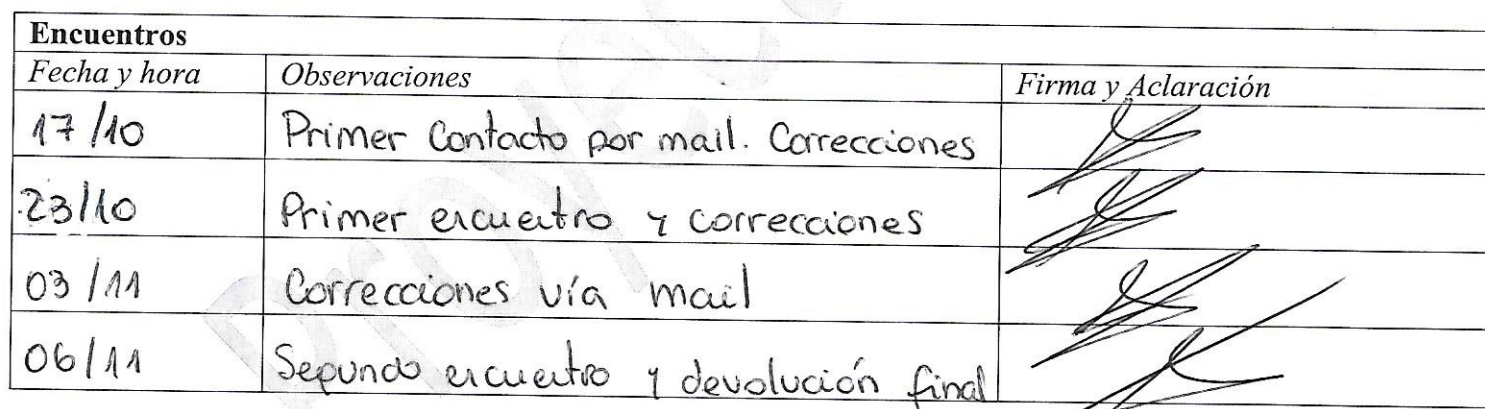 Encuentros
Fecha y hora Observaciones Firma y Aclaración
17/10 Primer Contacto por mail. Correcciones
23/10 Primer encuentro y correcciones
03/11 Correcciones vía mail
06/11 Segundo encuentro y devolución final